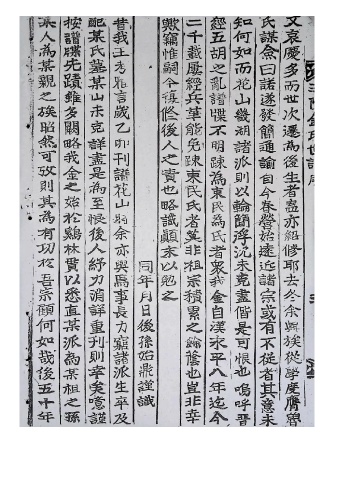 文哀慶多而世次遷為後生者盍亦紹修耶去冬余與族從學度膺魯
氏謀僉曰諾遂發簡通諭自今春營始遠近諸宗或有不從者其意未
知何如而花山幾湖諸派則以輪簡浮沈未克盡偕是可恨也嗚呼晉
經五胡之亂譜牒不明踈為東民為氏者衆我金自漢永平八年迄今
二千載屢經兵革能免踈東民氏者莫非祖宗積累之餘蔭也豈非幸
歟竊惟嗣今復修後人之責也略識顛末以勉之
同年月日後孫始鼎謹識
昔我王考 言歲乙卯刊譜花山時余亦與焉事長力窮諸派生卒及
配某氏墓某山未克詳盡是為至恨後人紓力消詳重刊則幸矣噫謹
按譜牒先蹟雖多闕略我金之始於鷄林貫以悉直某派為某祖之孫
某人為某親之 昭然可攷則其為有功於吾宗顧何如哉後五十年